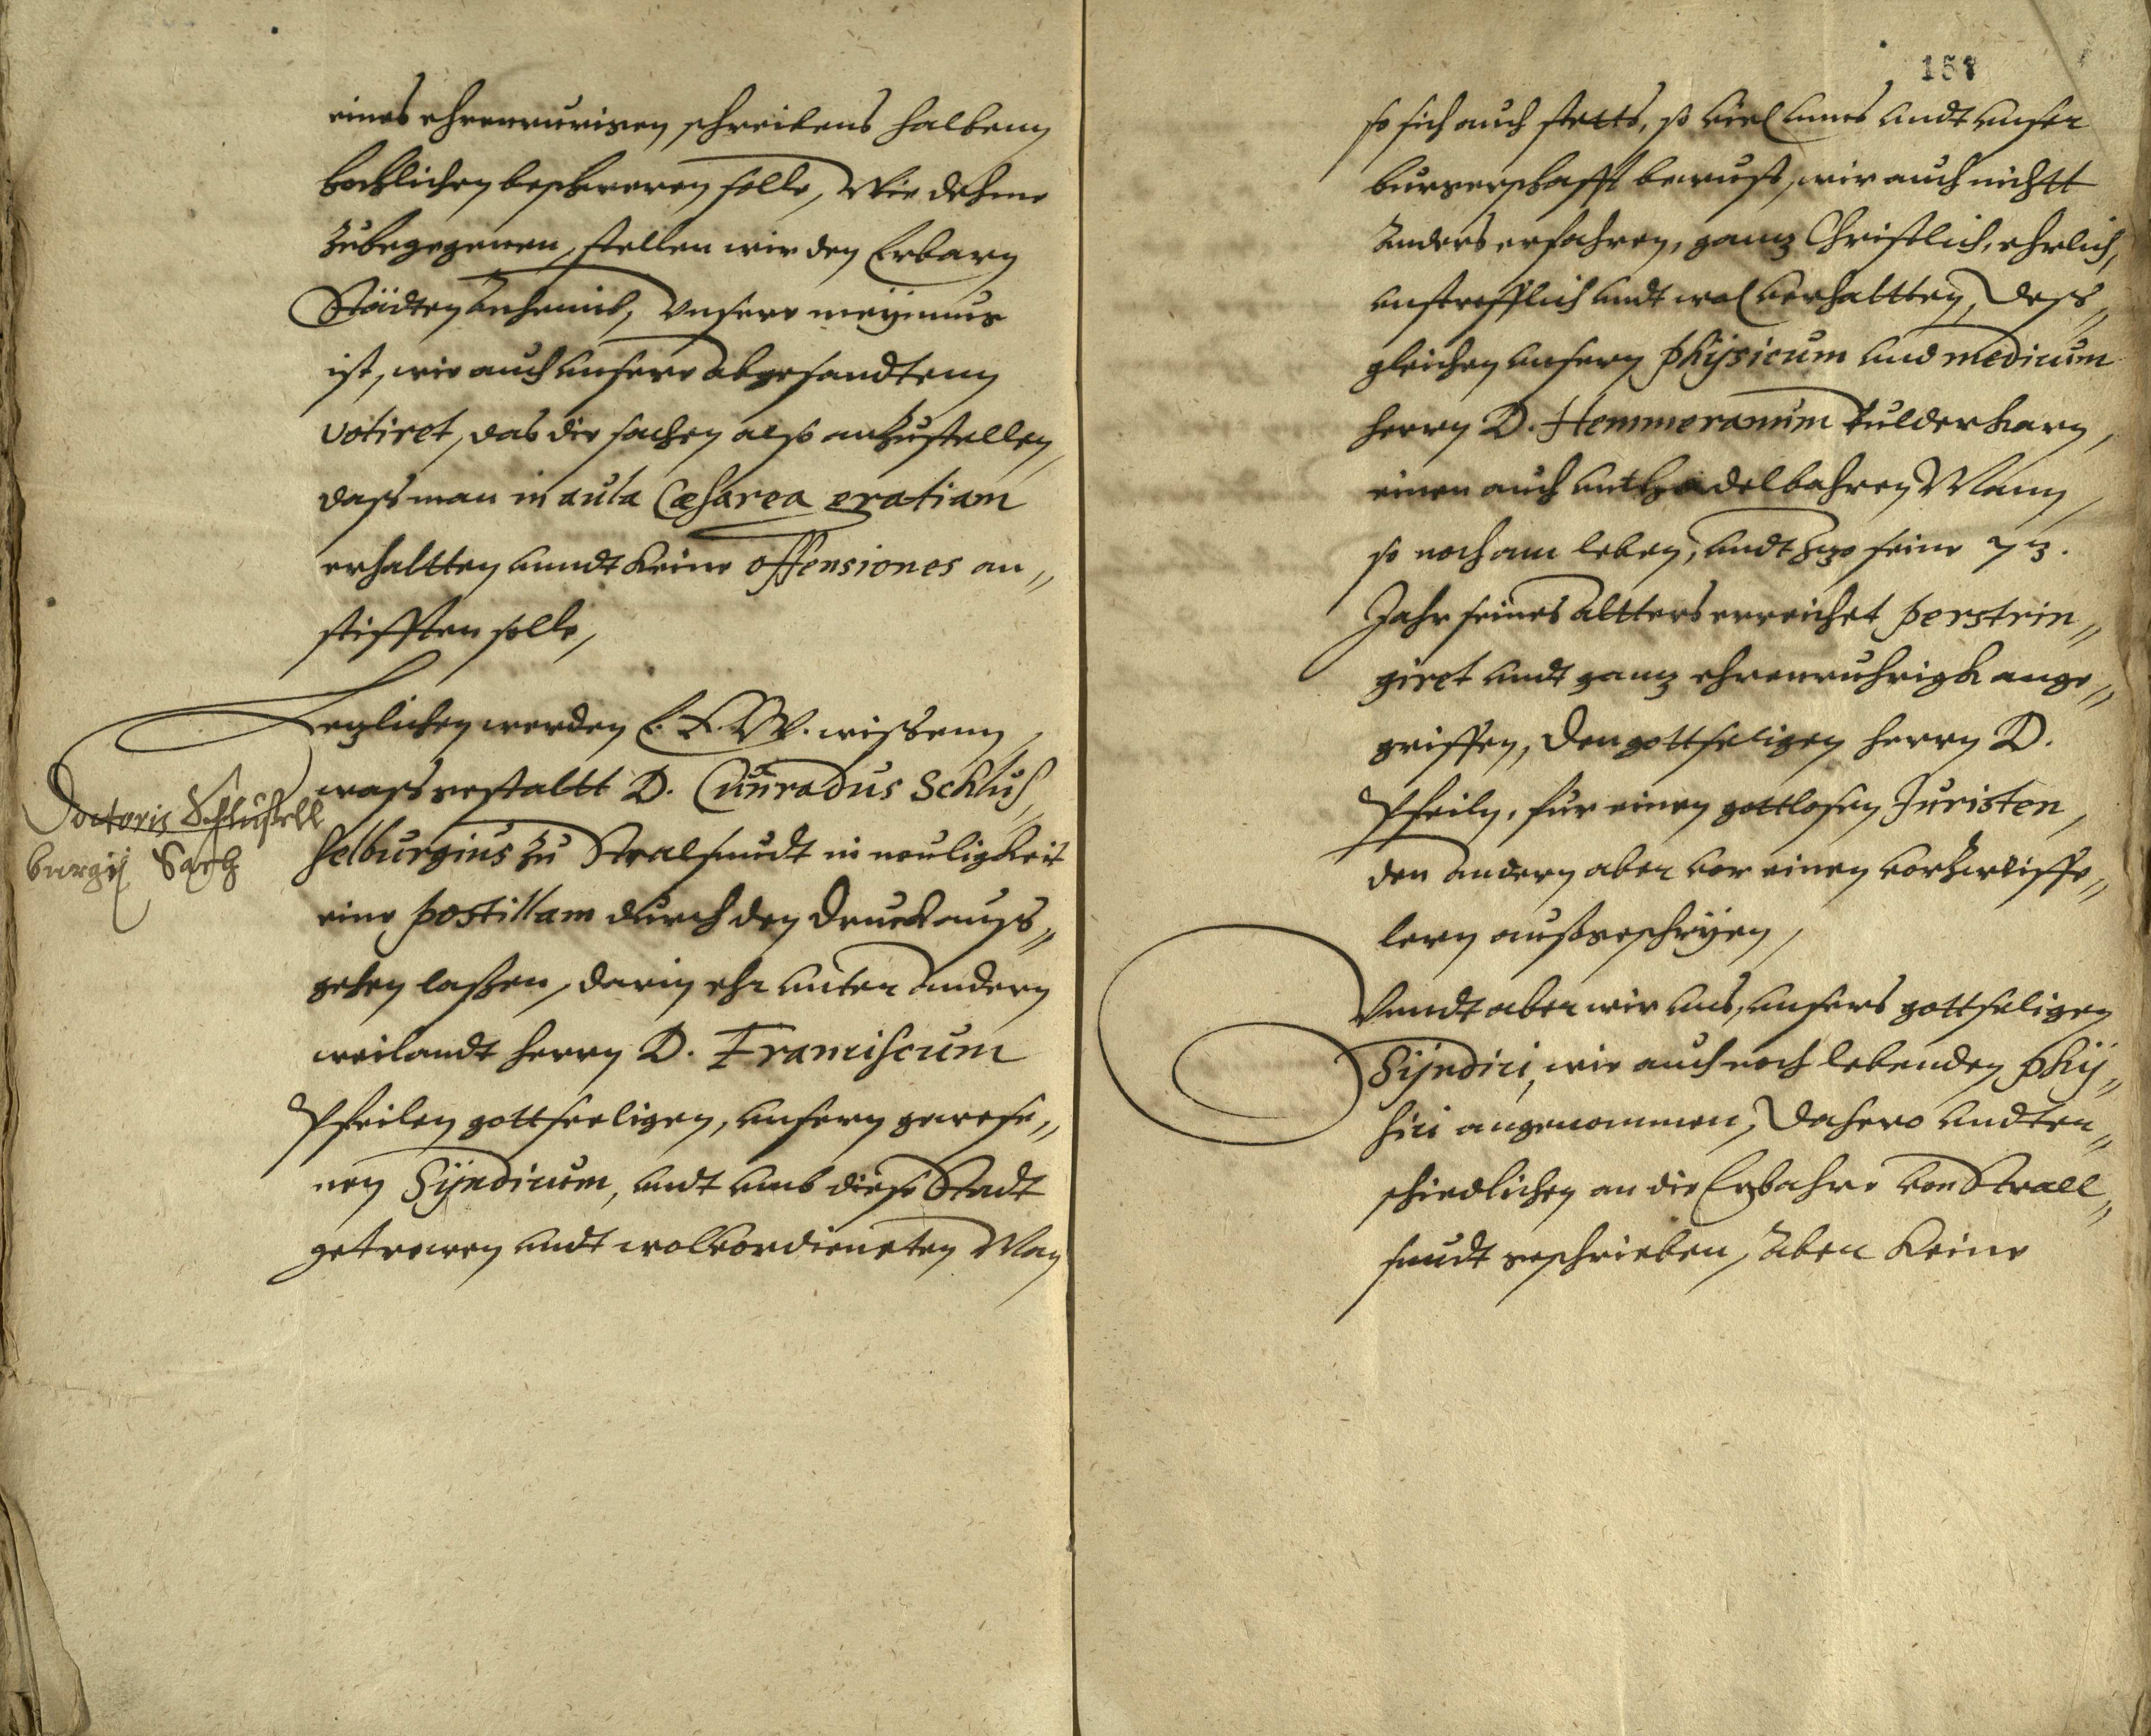 eines ehrenrurigen schreibens halbenn
hochlichen beschweren solle, Wie dehme
zubegegenen, stellen wir den Erbarn
Städten anheimb, Unsere meijnung
ist, wie auch unsere abgesandtenn
votiret, das die sachen also anzustellen,
dass man in aula Cæsarea gratiam
erhaltten unndt keine offensiones an„
stifften solle,
Letzlichen werden E. E. W. wissenn,
wass gestaltt D. Cunradus Schlus„
selburgius zu Stralsundt in neuligkeit
eine postillam durch den druck auss„
gehen lassen, darin ehr unter andern
weilandt herrn D. Franciscum
Pfeilen gottseeligen, unsern gewese„
nen Sÿndicum, undt umb diese Stadt
getrewen undt wolverdieneten Man
Doctoris Schlussell
burgij Sach
157
so sich auch stetts, so viel unns undt unser
burgerschafft bewust, wir auch nichtt
anders erfahren, gantz Christlich, ehrlich,
unstrefflich undt wol verhaltten, dess„
gleichen unsern physicum und medicum
herrn D. Hemmeranum
einen auch untadelbahren Mann,
so noch am leben, undt itzo seine 73.
Jahr seines altters erreichet perstrin„
giret undt gantz ehrenruhrigk ange„
griffen, den gottseligen herrn D.
Pfeiln, fur einen gottlosen Juristen,
den andern aber vor einen vorzweiffe„
lern aussgeschrÿen,
Unndt aber wir uns, unsers gottseligen
Sÿndici, wie auch noch lebenden phÿ„
sici angenommen, dahero undter„
schiedlichen an die Erbahre von Strall„
sundt geschrieben, aber keine